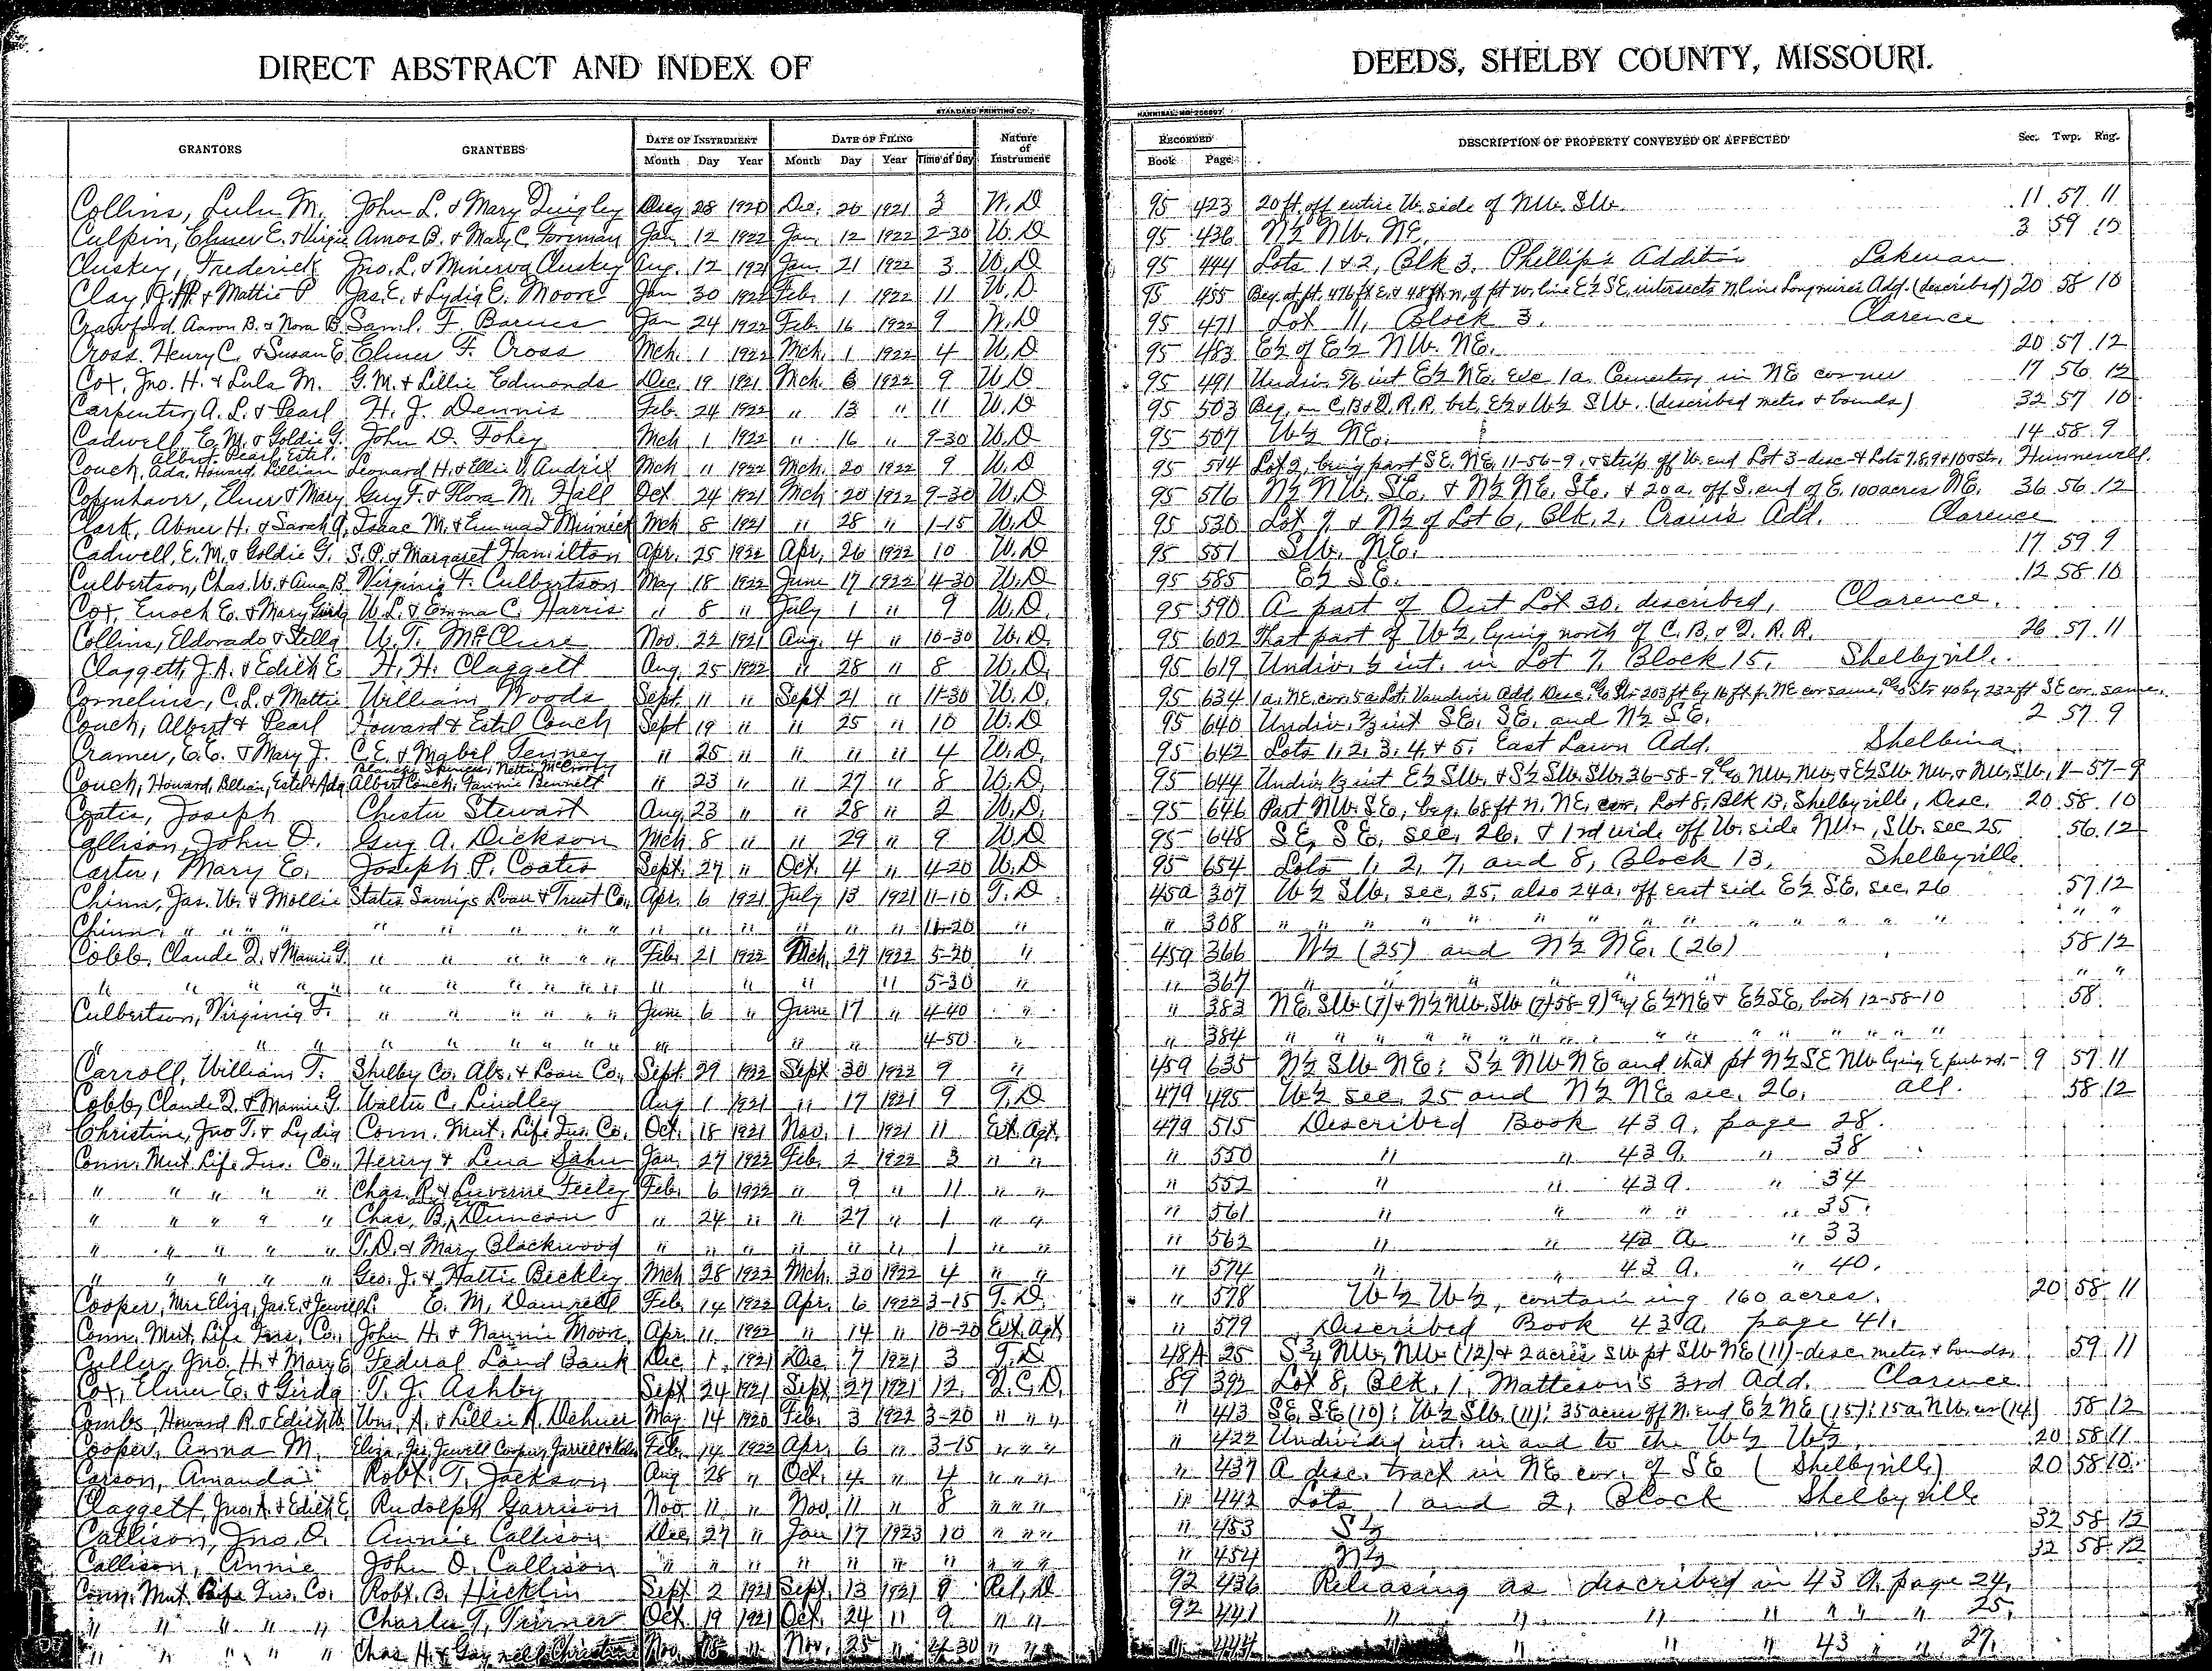 DIRECT ABSTRACT AND INDEX OF DEEDS, SHELBY COUNTY, MISSOURI.
STANDARD PRINTING CO., HANNIBAL, MO.
GRANTORS GRANTEES DATE OF INSTRUMENT DATE OF FILING Nature of Instrument RECORDED DESCRIPTION OF PROPERTY CONVEYED OR AFFECTED Sec. Twp. Rng.
Month Day Year Month Day Year Time of Day Book Page
Collins, Lulu M. John L. & Mary Quigley 28 1920 Dec. 20 1921 3 W.D 95 423 20 ft. off entire W. side of NW. SW. 11 57 11
Culpin, Elmer E. & Virgie Amos B. & Mary C. Foreman Jan 12 1922 Jan. 12 1922 2-30 W.D 95 436 N½ NW. NE. 3 59 10
Cluskey, Frederick Jno. L. & Minerva Cluskey Aug. 12 1921 Jan. 21 1922 3 W.D 95 444 Lots 1 & 2, Blk 3. Phillips Addition Lakenan
Clay, & Mattie P Jas. E. & Lydia E. Moore Jan 30 1922 Feb. 1 1922 11 W.D. 95 455 Beg. at pt. 476 ft E. & 48 ft n. of pt w. line E½ SE. intersects n line Longmires Add. (described) 20 58 10
Crawford, Aaron B. & Nora B. Saml. F. Barnes Jan 24 1922 Feb. 16 1922 9 W.D 95 471 Lot 11, Block 3. Clarence
Cross. Henry C. & Susan E. Elmer F. Cross Mch. 1 1922 Mch. 1 1922 4 W.D 95 483 E½ of E½ NW. NE. 20 57 12
Cox, Jno. H. & Lula M. G.M. & Lillie Edmonds Dec. 19 1921 Mch 6 1922 9 W.D 95 491 Undiv. 5/6 int E½ NE. exc 1a. Cemetery in NE corner 17 56 12
Carpenter, A. L. & Pearl H. J. Dennis Feb. 24 1922 " 13 " 11 W.D 95 503 Beg. on C.B.&Q. R.R. bet. E½ & W½ SW. (described metes & bounds) 32 57 10
Cadwell, E. M. & Goldie G. John D. Fohey Mch 1 1922 " 16 " 9-30 W.D 95 507 W½ NE. 14 58 9
Couch, Albert, Pearl, Estel, Ada, Howard, Lillian Leonard H. & Ellie V. Andris Mch 11 1922 Mch. 20 1922 9 W.D 95 514 Lot 2, being part SE. NE. 11-56-9, & strip off W. end Lot 3-desc & Lots 7,8,9 & 10 Hunnewell.
Copenhaver, Elmer & Mary Guy F. & Flora M. Hall Oct. 24 1921 Mch 20 1922 9-30 W.D 95 516 N½ NW. SE. & N½ NE. SE. & 20a. off S. end of E. 100 acres NE. 36 56 12
Clark, Abner H. & Sarah A. Isaac M. & Emma S Minnick Mch 8 1921 " 28 " 1-15 W.D 95 530 Lot 7 & N½ of Lot 6, Blk. 2, Crain's Add. Clarence
Cadwell, E.M. & Goldie G. S. P. & Margaret Hamilton Apr. 25 1922 Apr. 26 1922 10 W.D 95 551 SW. NE. 17 59 9
Culbertson, Chas. W. & Anna B. Virginia F. Culbertson May 18 1922 June 17 1922 4-30 W.D 95 585 E½ SE. 12 58 10
Cox, Enoch E. & Mary W. L. & Emma C. Harris " 8 " July 1 " 9 W.D. 95 590 A part of Out Lot 30, described, Clarence.
Collins, Eldorado & Stella W. T. McClure Nov. 22 1921 Aug. 4 " 10-30 W.D. 95 602 That part of W½, lying north of C. B. & Q. R. R. 26 57 11
Claggett, J.A. & Edith E H. H. Claggett Aug. 25 1922 " 28 " 8 W.D. 95 619 Undiv. ½ int. in Lot 7, Block 15. Shelbyville.
Cornelius, C.L. & Mattie William Woods Sept 11 " Sept 21 " 11-30 W.D. 95 634 1a. NE. cor. 5a Lot. Vandiver Add. Desc. also Str 203 ft by 16 ft fr. NE cor same, also Str 40 by 232 ft SE cor. same.
Couch, Albert & Pearl Howard & Estel Couch Sept 19 " " 25 " 10 W.D 95 640 Undiv. ⅔ int SE. SE. and N½ SE. 2 57 9
Cramer, E.E. & Mary J. C. E. & Mabel Tenney " 25 " " " " 4 W.D. 95 642 Lots 1, 2, 3, 4, & 5. East Lawn Add. Shelbina.
Couch, Howard, Lillian, Estel & Ada Blanche Spencer, Nettie McCrosky, Albert Couch, Fannie Bennett " 23 " " 27 " 8 W.D. 95 644 Undiv. ⅓ int E½ SW. & S½ SW. SW. 36-58-9, also NW. NW. & E½ SW. NW. & NW. SW. 1-57-9
Coates, Joseph Chester Stewart Aug. 23 " " 28 " 2 W.D. 95 646 Part NW. SE., beg. 68 ft N. NE. cor. Lot 8, Blk 13, Shelbyville, Desc. 20 58 10
Callison, John O. Guy A. Dickson Mch. 8 " " 29 " 9 W.D 95 648 SE. SE. sec. 26. & 1 rd wide off W. side NW., SW. sec 25. 56 12
Carter, Mary E. Joseph P. Coates Sept. 27 " Oct. 4 " 4-20 W.D. 95 654 Lots 1, 2, 7, and 8, Block 13, Shelbyville.
Chinn, Jas. W. & Mollie States Savings Loan & Trust Co., Apr. 6 1921 July 13 1921 11-10 T.D. 45a 307 W½ SW. sec. 25, also 24a. off east side E½ SE. sec. 26 57 12
Chinn, " " " " " " " " " " " " " " " " 11-20 " " 308 " " " " " " " " " " " " " "
Cobb, Claude D. & Mamie G. " " " " " " Feb. 21 1922 Mch. 27 1922 5-20 " 45a 366 W½ (25) and N½ NE. (26) 58 12
" " " " " " " " " " " " " " " 5-30 " 367 " " " " " "
Culbertson, Virginia F. " " " " " " June 6 " June 17 " 4-40 " " 383 NE. SW (7) & N½ NW. SW (7) 58-9) and E½ NE & E½ SE, both 12-58-10 58
" " " " " " " " " " " " 4-50 " " 384 " " " " " " " " " " " "
Carroll, William T. Shelby Co. Abs. & Loan Co., Sept. 29 1922 Sept 30 1922 9 " 45a 635 N½ SW NE; S½ NW NE and that pt N½ SE NW lying E pub rd. 9 57 11
Cobb, Claude D. & Mamie G. Walter C. Lindley Aug 1 1921 " 17 1921 9 T.D 47a 495 W½ sec. 25 and N½ NE sec. 26, all. 58 12
Christine, Jno T. & Lydia Conn. Mut. Life Ins. Co. Oct. 18 1921 Nov. 1 1921 11 Ext. Agt. 47a 515 Described Book 43 a, page 28.
Conn. Mut. Life Ins. Co., Henry & Lena Jan. 27 1922 Feb. 2 1922 3 " " " 550 " " 43 a. " 38
" " " " " Chas. R. & Luverne Feeley Feb. 6 1922 " 9 " 11 " " " 552 " " 43 a. " 34
" " " " " Chas. B. Duncan " 24 " " 27 " 1 " " " 561 " " " " " 35.
" " " " " T.D. & Mary Blackwood " " " " " " 1 " " " 562 " " 43 a " 33
" " " " " Geo. J. & Hattie Beckley Mch 28 1922 Mch. 30 1922 4 " " " 574 " " 43 a. " 40.
Cooper, Mrs Eliza, Jas. E. & Jewell L. E. M. Damrell Feb. 14 1922 Apr. 6 1922 3-15 T. D. " 578 W½ W½, containing 160 acres. 20 58 11
Conn. Mut. Life Ins. Co., John H. & Nannie Moore Apr. 11 1922 " 14 " 10-20 Ext. Agt " 579 Described Book 43 a, page 41.
Culler, Jno. H. & Mary E Federal Land Bank Dec. 1 1921 Dec. 7 1921 3 T.D 48A 25 S¾ NW. NW (12) & 2 acres SW pt SW NE (11)-desc. metes & bounds. 59 11
Cox, Elmer E. & Girda T. J. Ashby Sept 24 1921 Sept 27 1921 12 Q.C.D. 89 392 Lot 8, Blk. 1, Matteson's 3rd Add. Clarence
Combs, Howard R. & Edith W. Wm. A. & Lillie R. Dehner May 14 1920 Feb. 3 1922 3-20 " " " " 413 SE. SE (10); W½ SW. (11); 35 acres off N. end E½ NE (15); 15a. NW. cor (14) 58 12
Cooper, Anna M. Eliza, Jas. Jewell Cooper, Feb. 14 1922 Apr. 6 " 3-15 " " " " 422 Undivided int. in and to the W½ W½ 20 58 11
Carson, Amanda Robt. T. Jackson Aug 28 " Oct. 4 " 4 " " " " 437 A desc. track in NE cor. of SE (Shelbyville) 20 58 10
Claggett, Jno. A. & Edith E. Rudolph Garrison Nov. 11 " Nov. 11 " 8 " " " " 442 Lots 1 and 2, Block Shelbyville
Callison, Jno. O. Annie Callison Dec. 27 " Jan 17 1923 10 " " " " 453 S½ 32 58 12
Callison, Annie John O. Callison " " " " " " " " " " " 454 N½ 32 58 12
Conn. Mut. Life Ins. Co. Robt. B. Hicklin Sept 2 1921 Sept. 13 1921 8 Rel. D 92 436 Releasing as described in 43 a. page 24.
" " " " " Charles T. Turner Oct. 19 1921 Oct. 24 " 9 " " 92 441 " " " " " " 25.
" " " " " Chas. H. & Gaynell Christine Nov. 18 " Nov. 25 " 4-30 " " " 444 " " " 43 " " 27.